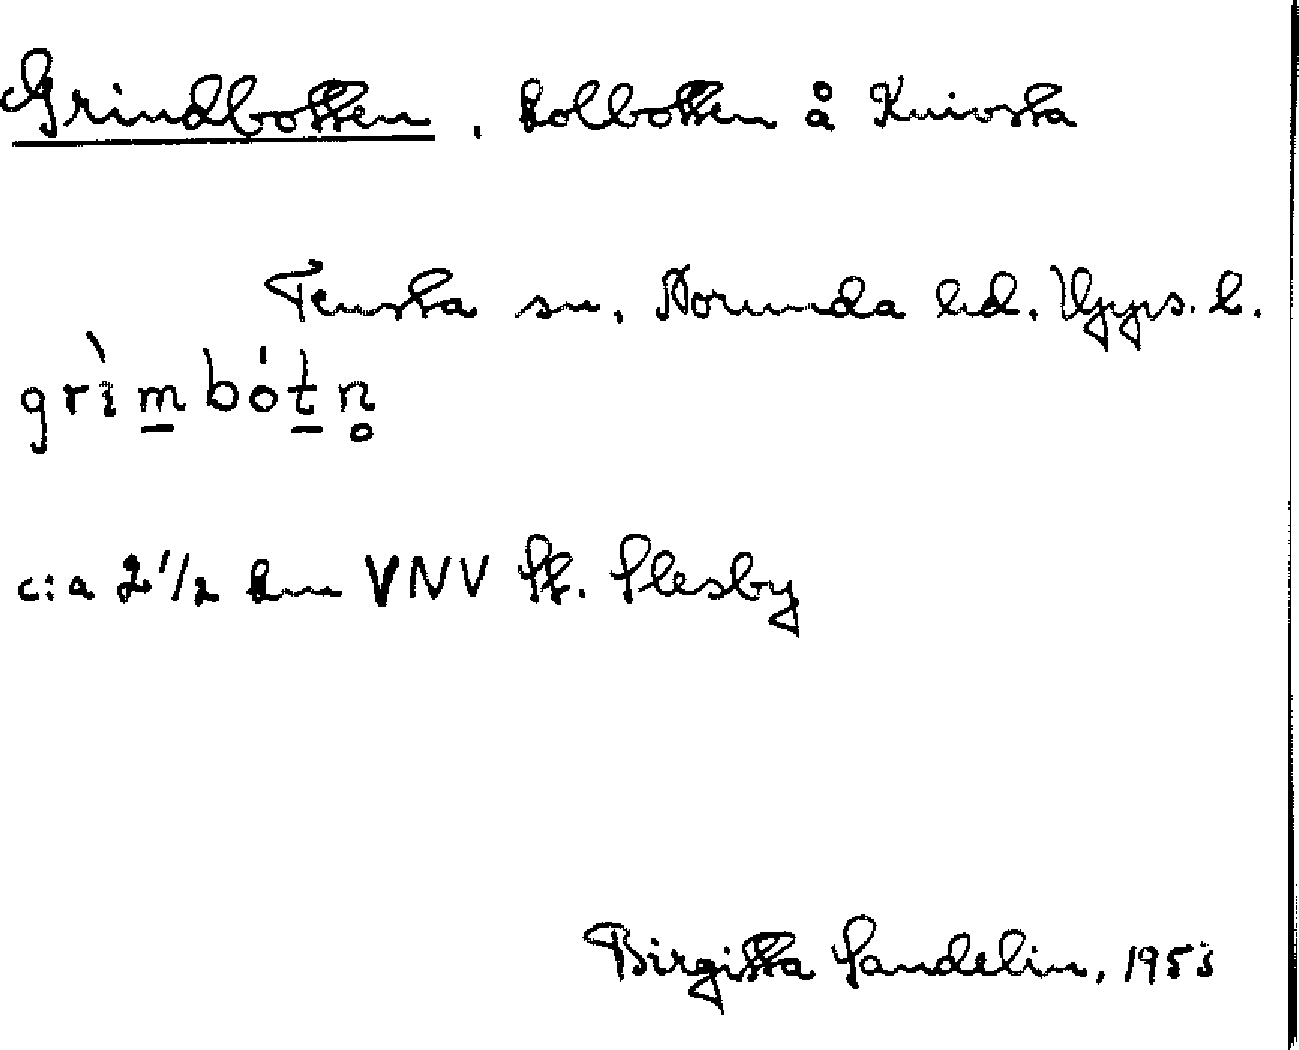 Grindbotten, kolbotten å Knivsta
Tensta sn. Norunda hd. Upps. l.
grìm̲bót̲n̥
c:a 2 1/2 km VNV St. Slesby
Birgitta Sandelin, 1953